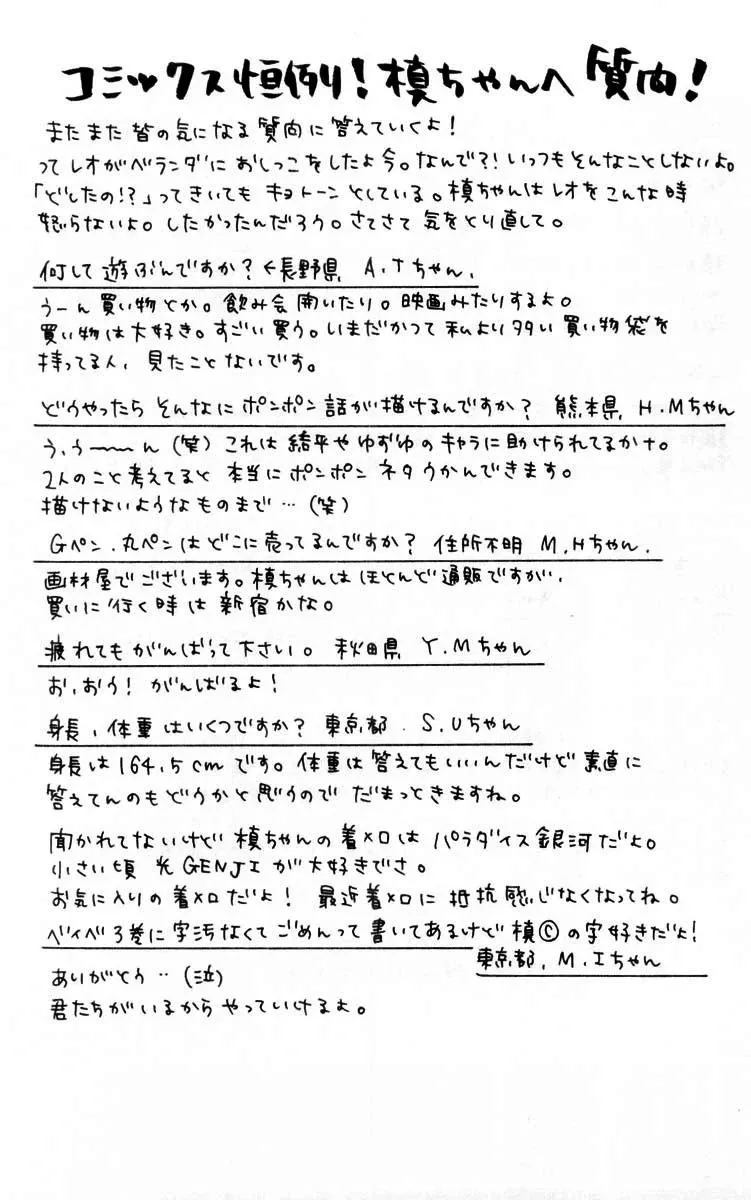 コミックス恒例！槙ちゃんへ質問！
またまた皆の気になる質問に答えていくよ！
ってレオがベランダにおしっこをしたよ今。なんで?!いっつもそんなことしないよ。
「どしたの!?」ってきいてもキョトーンとしている。槙ちゃんはレオをこんな時
怒らないよ。したかったんだろう。さてさて気をとり直して。
何して遊ぶんですか？←長野県 A.Tちゃん.
うーん買い物とか。飲み会開いたり。映画みたりするよ。
買い物は大好き。すごい買う。いまだかつて私より多い買い物袋を
持ってる人、見たことないです。
どうやったらそんなにポンポン話が描けるんですか？ 熊本県 H.Mちゃん
う、う〜〜ん（笑）これは結平やゆずゆのキャラに助けられてるかナ。
2人のこと考えてると本当にポンポンネタうかんできます。
描けないようなものまで…（笑）
Gペン、丸ペンはどこに売ってるんですか？ 住所不明 M.Hちゃん.
画材屋でございます。槙ちゃんはほとんど通販ですが、
買いに行く時は新宿かな。
疲れてもがんばって下さい。 秋田県 Y.Mちゃん
お、おう！がんばるよ！
身長、体重はいくつですか？ 東京都. S.Uちゃん
身長は164.5cmです。体重は答えてもいいんだけど素直に
答えてんのもどうかと思うのでだまっときますね。
聞かれてないけど槙ちゃんの着メロはパラダイス銀河だよ。
小さい頃光GENJIが大好きでさ。
お気に入りの着メロだよ！ 最近着メロに抵抗感じなくなってね。
ベイベ3巻に字汚なくてごめんって書いてあるけど槙©の字好きだよ！
東京都. M.Iちゃん
ありがとう‥（泣）
君たちがいるからやっていけるよ。